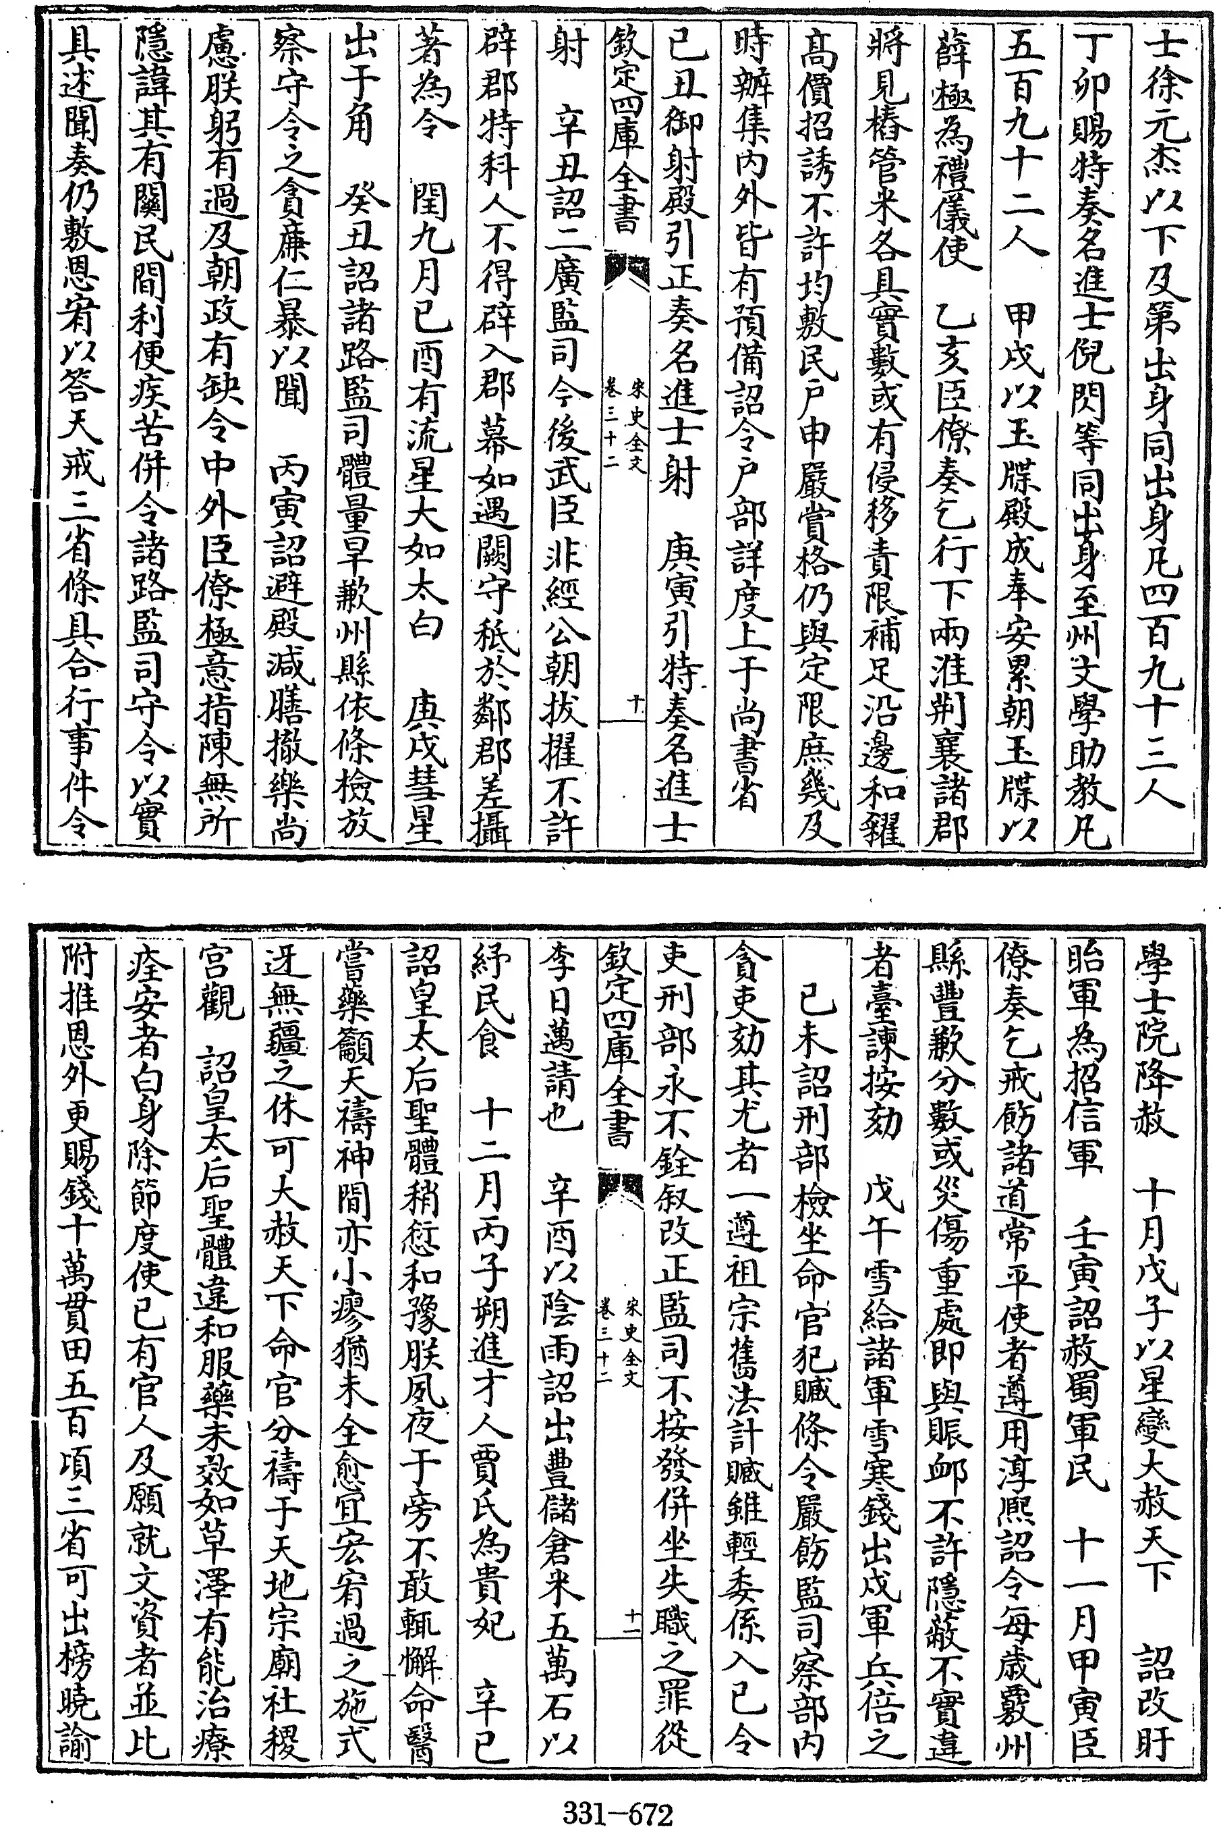 士徐元杰以下及第出身同出身凡四百九十三人
丁卯賜特奏名進士倪閃等同出身至州文學助教凡
五百九十二人　甲戌以玉牒殿成奉安累朝玉牒以
薛極為禮儀使　乙亥臣僚奏乞行下兩淮荆襄諸郡
將見樁管米各具實數或有侵移責限補足沿邊和糴
髙價招誘不許均敷民户申嚴賞格仍與定限庶幾及
時辦集内外皆有預備詔令户部詳度上于尚書省
己丑御射殿引正奏名進士射　庚寅引特奏名進士
欽定四庫全書
宋史全文
卷三十二
十
射　辛丑詔二廣監司今後武臣非經公朝拔擢不許
辟郡特科人不得辟入郡幕如遇闕守秪於鄰郡差攝
著為令　閏九月己酉有流星大如太白　庚戌彗星
出于角　癸丑詔諸路監司體量旱歉州縣依條檢放
察守令之貪廉仁暴以聞　丙寅詔避殿減膳撤樂尚
慮朕躬有過及朝政有缺令中外臣僚極意指陳無所
隱諱其有關民間利便疾苦併令諸路監司守令以實
具述聞奏仍敷恩宥以答天戒三省條具合行事件令
學士院降赦　十月戊子以星變大赦天下　詔改盱
眙軍為招信軍　壬寅詔赦蜀軍民　十一月甲寅臣
僚奏乞戒飭諸道常平使者遵用淳熙詔令每歲覈州
縣豐歉分數或災傷重處即與賑卹不許隱蔽不實違
者臺諫按劾　戊午雪給諸軍雪寒錢出戍軍兵倍之
己未詔刑部檢坐命官犯贓條令嚴飭監司察部内
貪吏劾其尤者一遵祖宗舊法計贓雖輕委係入己令
吏刑部永不銓叙改正監司不按發併坐失職之罪從
欽定四庫全書
宋史全文
卷三十二
十一
李日邁請也　辛酉以陰雨詔出豐儲倉米五萬石以
紓民食　十二月丙子朔進才人賈氏為貴妃　辛巳
詔皇太后聖體稍愆和豫朕夙夜于旁不敢輒懈命醫
嘗藥籲天禱神間亦小瘳猶未全愈宜宏宥過之施式
迓無疆之休可大赦天下命官分禱于天地宗廟社稷
宫觀　詔皇太后聖體違和服藥未效如草澤有能治療
痊安者白身除節度使已有官人及願就文資者並比
附推恩外更賜錢十萬貫田五百頃三省可出榜曉諭
331-672